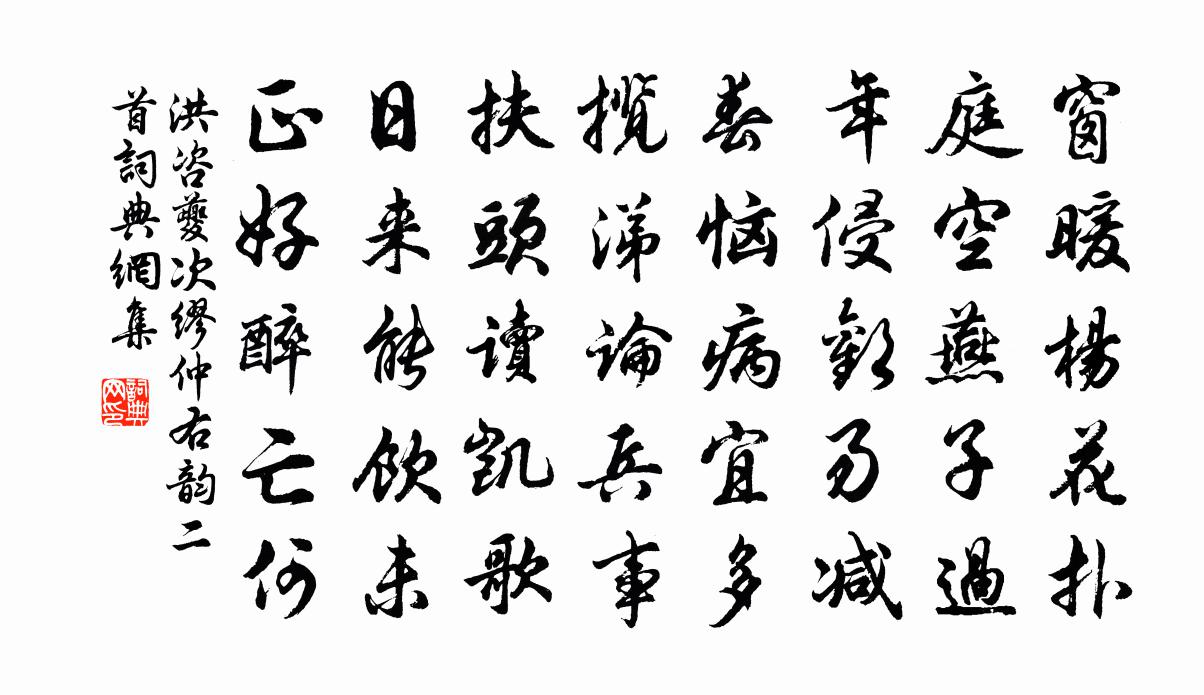 窗暖楊花扑
庭空燕子過
年侵歡易减
春恼病宜多
揽涕論兵事
扶頭讀凯歌
日来能飲未
正好醉亡何
洪咨夔次繆仲右韵二
首詞典網集
詞典网印